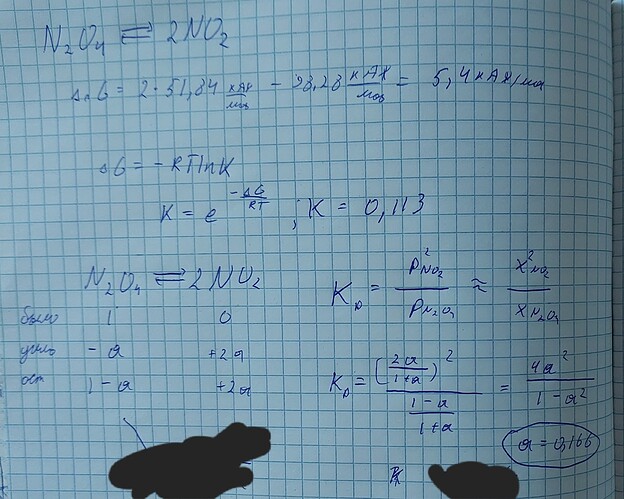 N₂O₄ ⇌ 2NO₂
ΔᵣG = 2·51,84 кДж/моль − 98,28 кДж/моль = 5,4 кДж/моль
ΔG = −RTlnK
K = e^(−ΔG/RT) ; K = 0,113
N₂O₄ ⇌ 2NO₂
было 1 0
ушло −a +2a
ост 1−a +2a
Kₚ = P²NO₂ / PN₂O₄ ≈ X²NO₂ / XN₂O₄
Kₚ = (2a/(1+a))² / ((1−a)/(1+a)) = 4a² / (1−a²)
a = 0,166